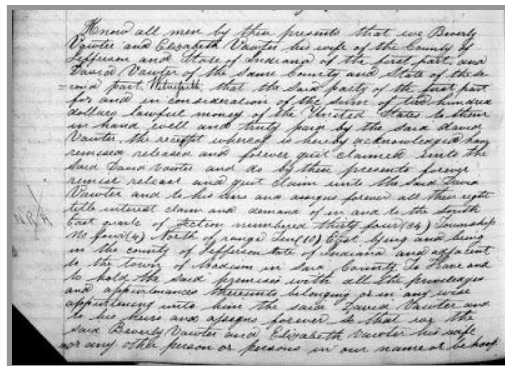 Know all men by these presents that we Beverly
Vawter and Elizabeth Vawter his wife of the County of
Jefferson and State of Indiana of the first part, and
David Vawter of the Same County and State of the Se
=cond part. Witnesseth, that the Said party of the first part
for and in consideration of the Sum of two hundred
dollars lawful money of the United States to them
in hand well and truly paid by the said David
Vawter, the receipt whereof is hereby acknowledged have
remised released and forever quit claimed unto the
Said David Vawter and do by these presents forever
remise release and quit claim unto the Said David
Vawter and to his heirs and assigns forever all their right
title interest claim and demand of in and to the South
East of Section numbered thirty four (34) Township
No four (4) North of range Ten (10) East lying and being
in the County of Jefferson State of Indiana and adjacent
to the town of Madison in Said County To Have and
to hold the Said premises with all the privileges
and appurtenances thereunto belonging or in any wise
appertaining unto him the said David Vawter and
to his heirs and assigns forever So that we the
said Beverly Vawter and Elizabeth Vawter his wife
or any other person or persons in our name or behalf